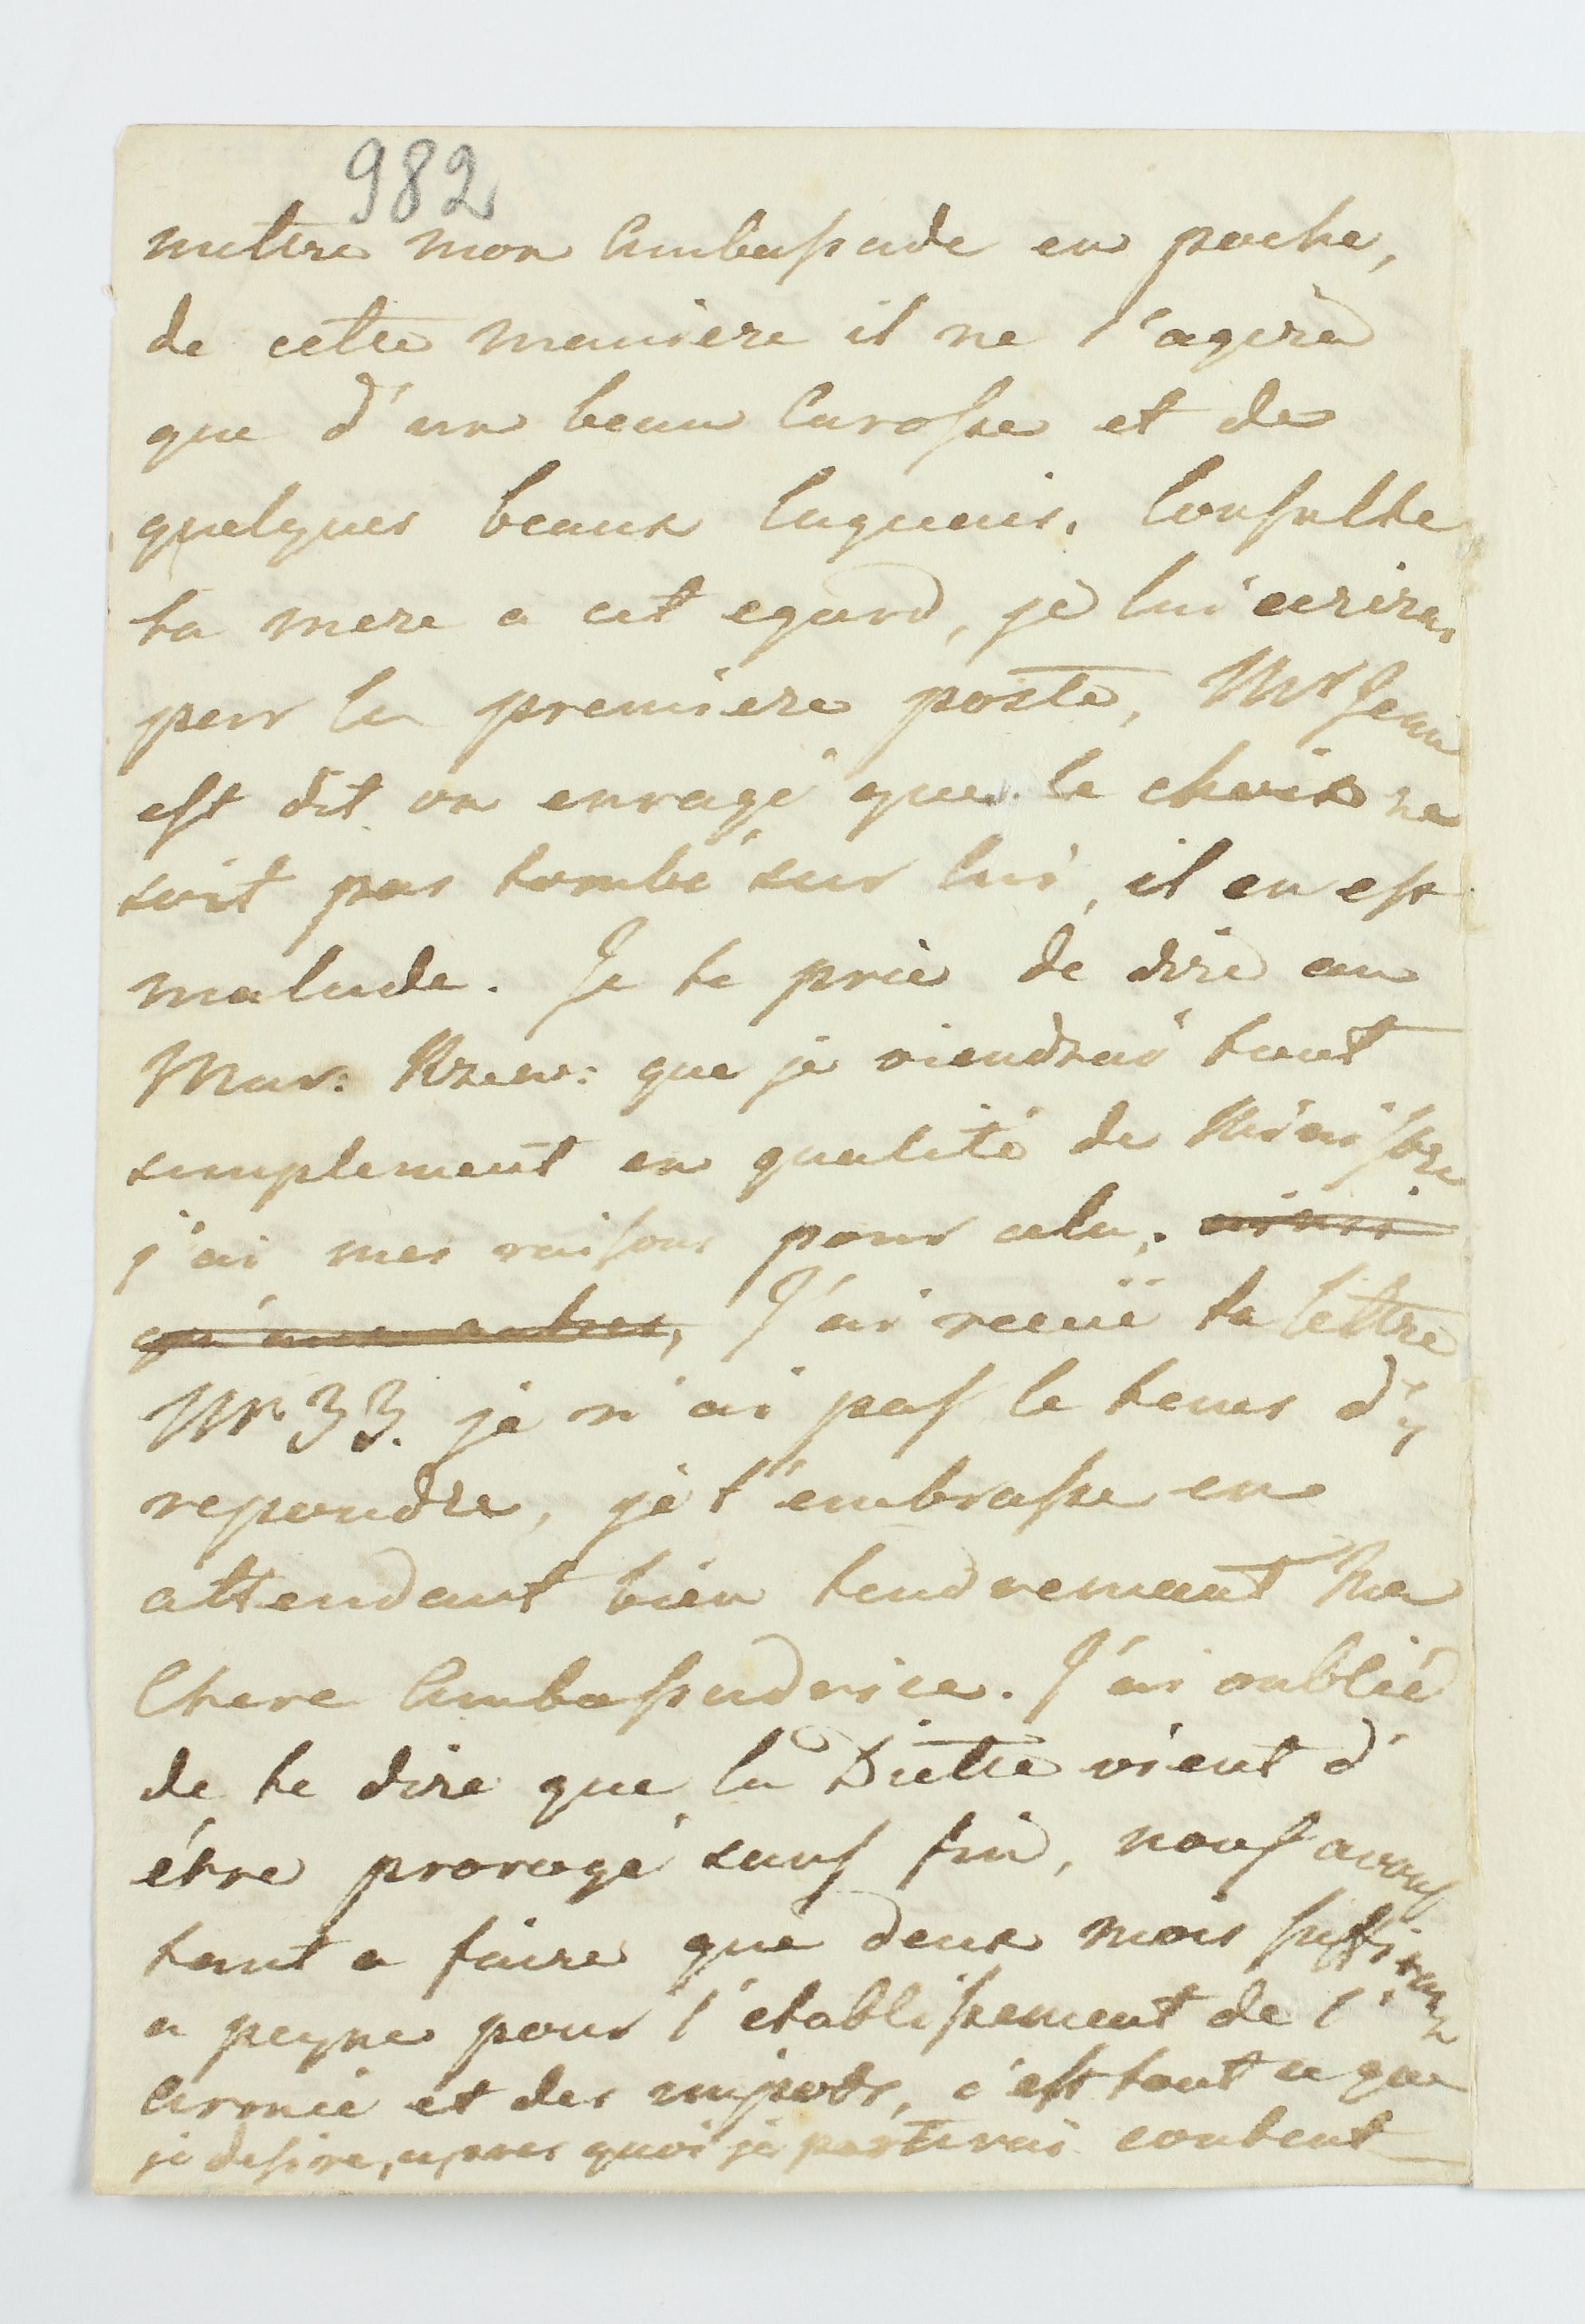 982
mettre mon Ambassade en poche,
de cette maniere il ne s'agira
que d'un beau Carosse et de
quelques beaux laquais. Consulte
ta mere a cet egard, je lui ecrirai
par la premiere poste, Mr Jean
est dit on enragé que le choix ne
soit pas tombé sur lui, il en est
malade. Je te prie de dire au
Mar: Rzew: que je viendrai tout
simplement en qualité de Ministre
j'ai mes raisons pour cela. ainsi
J'ai reçuë ta lettre
Nr. 33. je n'ai pas le tems d'y
repondre, je t'embrasse en
attendant bien tendrement Ma
Chere Ambassadrice. J'ai oublié
de te dire que la Diette vient d'
étre prorogé sans fin, nous avons
tant a faire que deux mois suffiront
a peyne pour l'etablissement de l'
Armée et des impots, c'est tout ce que
je desire, apres quoi je partirai content